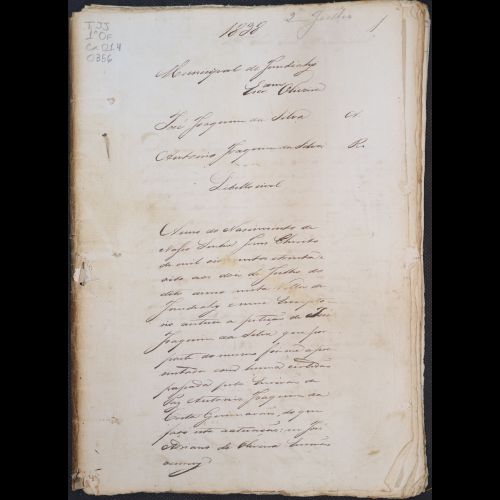 TJJ
1º Of
Cx 014
0356
1838
2 Julho
1
Municipal de Jundiahy
Oliveira
José Joaquim da Silva A.
Antonio Joaquim da Silva R.
Libello civel
Anno do Nascimento de
Nosso Senhor Jesus Christo
de mil oito centos e trinta e
oito aos dois de Julho do
dito anno nesta Villa de
Jundiahy e meu
autuei a petição de José
Joaquim da Silva que por
parte do mesmo foi me a pre
sentada com huma certidão
passada pelo Escrivão de
Paz Antonio Joaquim da
Costa Guimarães, do que
faço esta autuação: eu José
Adriano de Oliveira Escrivão